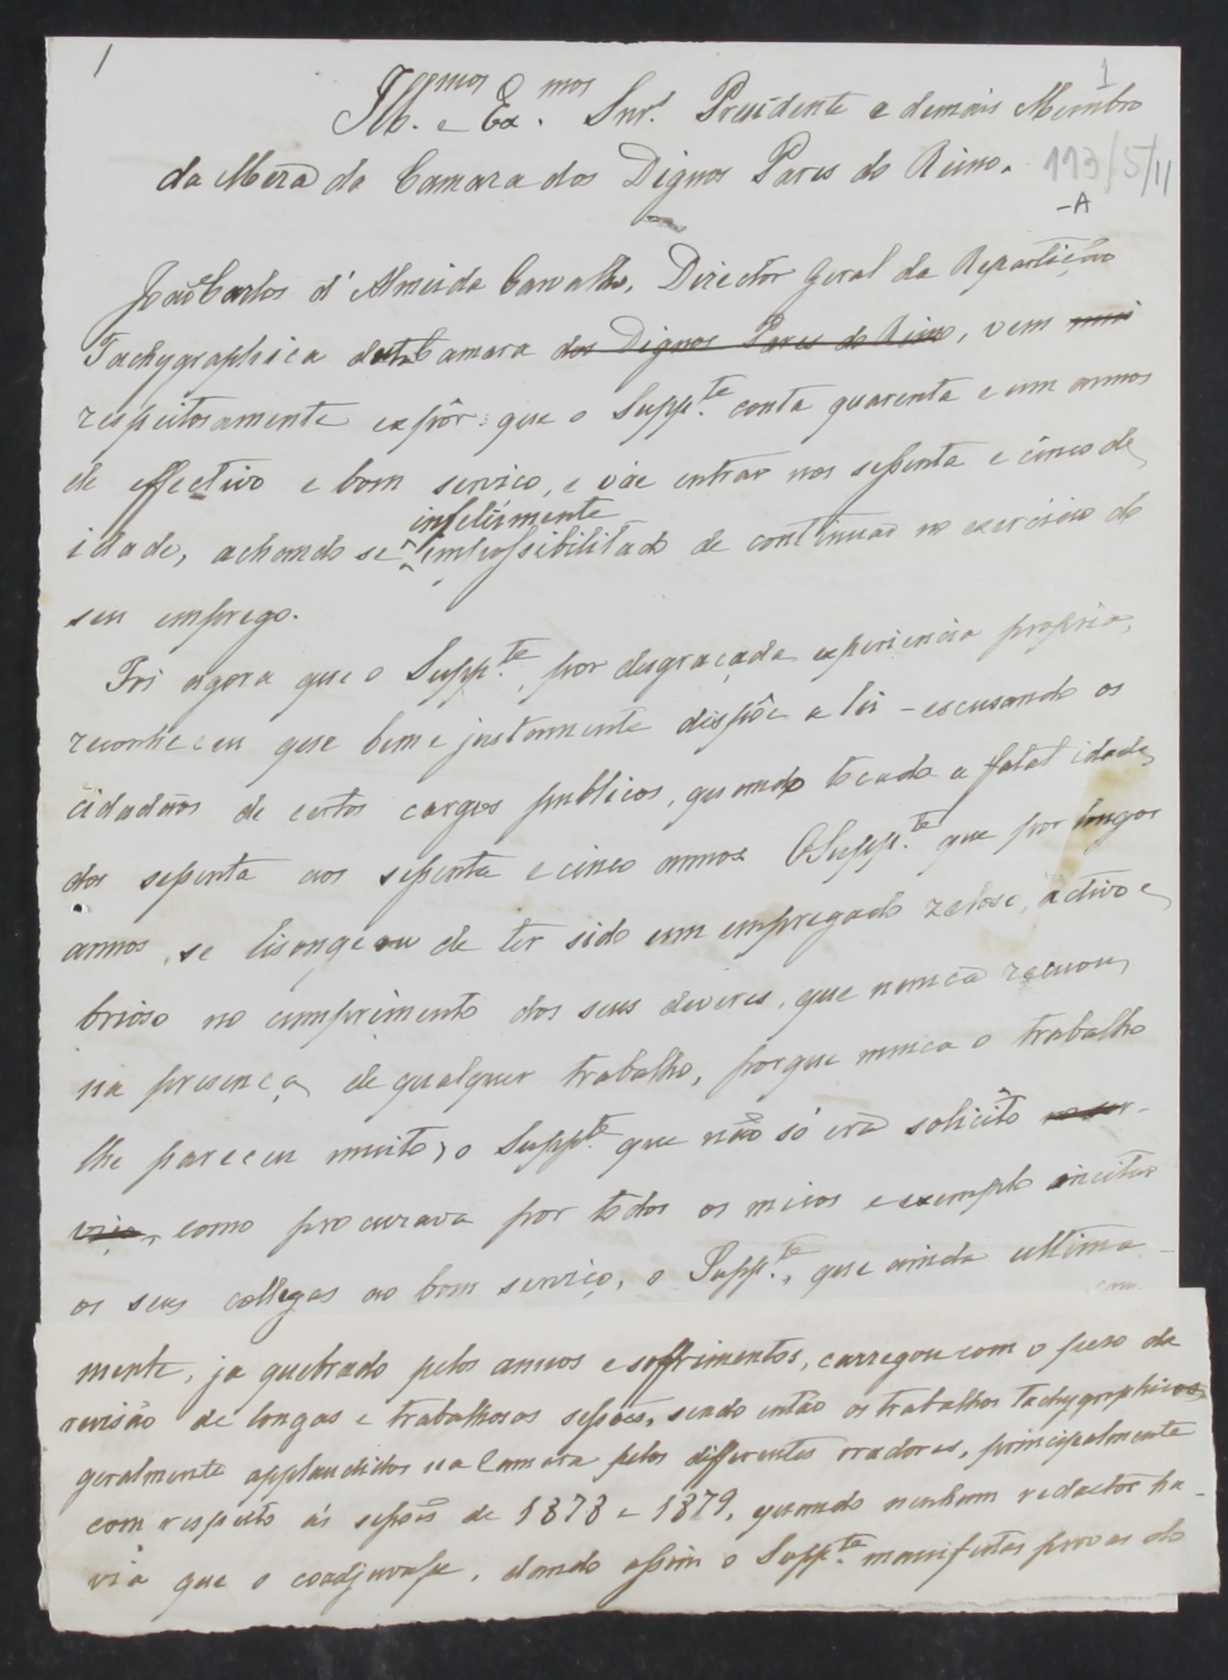 1
1
Ill.mos e Ex.mos Snr.s Presidente e demais Membro
da Meza da Camara dos Dignos Pares do Reino.
113/5/11
-A
João Carlos d'Almeida Carvalho, Director Geral da Repartição
Tachygraphica desta Camara dos Dignos Pares do Reino, vem mui
respeitosamente expôr: que o Supp.te conta quarenta e um annos
de effectivo e bom serviço, e váe entrar nos seſsenta e cinco de
idade, achando se infelismente impoſsibilitado de continuar no exercicio do
seu emprego.
Foi agora que o Supp.te, por desgraçada experiencia propria,
reconheceu que bem e justamente dispõe a lei - escusando os
cidadãos de certos cargos publicos, quando tocada a fatal idade
dos seſsenta aos seſsenta e cinco annos. O Supp.te que por longos
annos, se lisongeou de ter sido um empregado zeloso, activo e
brioso no cumprimento dos seus deveres, que nunca recuou
na presença de qualquer trabalho, porque nunca o trabalho
lhe pareceu muito, o Supp.te que não só era solicito no ser-
viço, como procurava por todos os meios e exemplo incitar
os seus collegas ao bom serviço, o Supp.te, que ainda ultima-
mente, ja quebrado pelos annos e soffrimentos, carregou com o peso da
revisão de longas e trabalhosas seſsões, sendo então os trabalhos tachygraphicos
geralmente applaudidos na Camara pelos differentes oradores, principalmente
com respeito ás seſsões de 1878 e 1879, quando nenhum redactor ha-
via que o coadjuvaſse, dando aſsim o Supp.te manifestas provas do